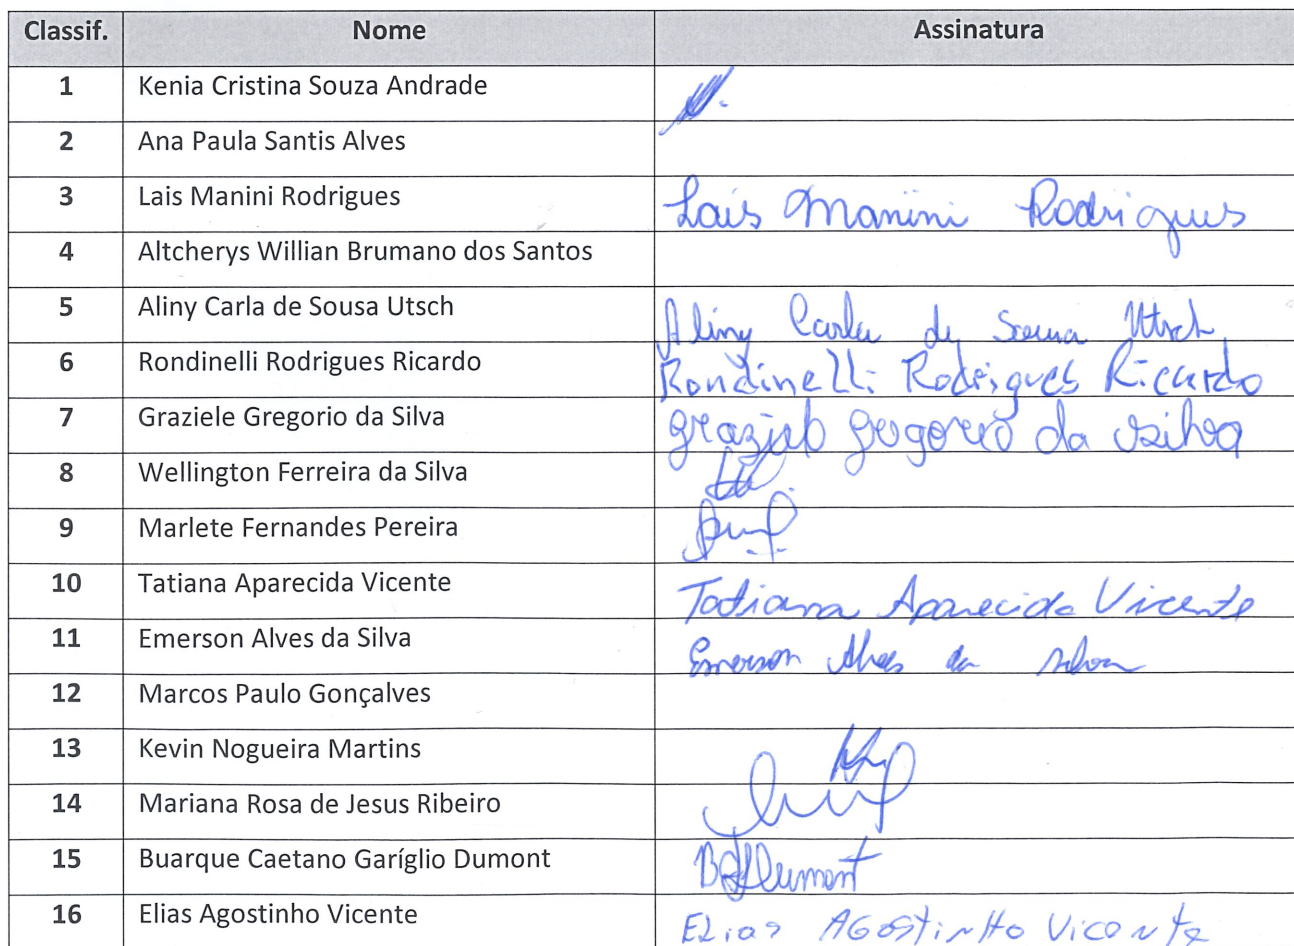 Classif. Nome Assinatura
1 Kenia Cristina Souza Andrade
2 Ana Paula Santis Alves
3 Lais Manini Rodrigues Lais Manini Rodrigues
4 Altcherys Willian Brumano dos Santos
5 Aliny Carla de Sousa Utsch Aliny Carla de Sousa Utsch
6 Rondinelli Rodrigues Ricardo Rondinelli Rodrigues Ricardo
7 Graziele Gregorio da Silva Graziele Gregorio da Silva
8 Wellington Ferreira da Silva
9 Marlete Fernandes Pereira
10 Tatiana Aparecida Vicente Tatiana Aparecida Vicente
11 Emerson Alves da Silva Emerson Alves da Silva
12 Marcos Paulo Gonçalves
13 Kevin Nogueira Martins
14 Mariana Rosa de Jesus Ribeiro
15 Buarque Caetano Garíglio Dumont
16 Elias Agostinho Vicente Elias Agostinho Vicente